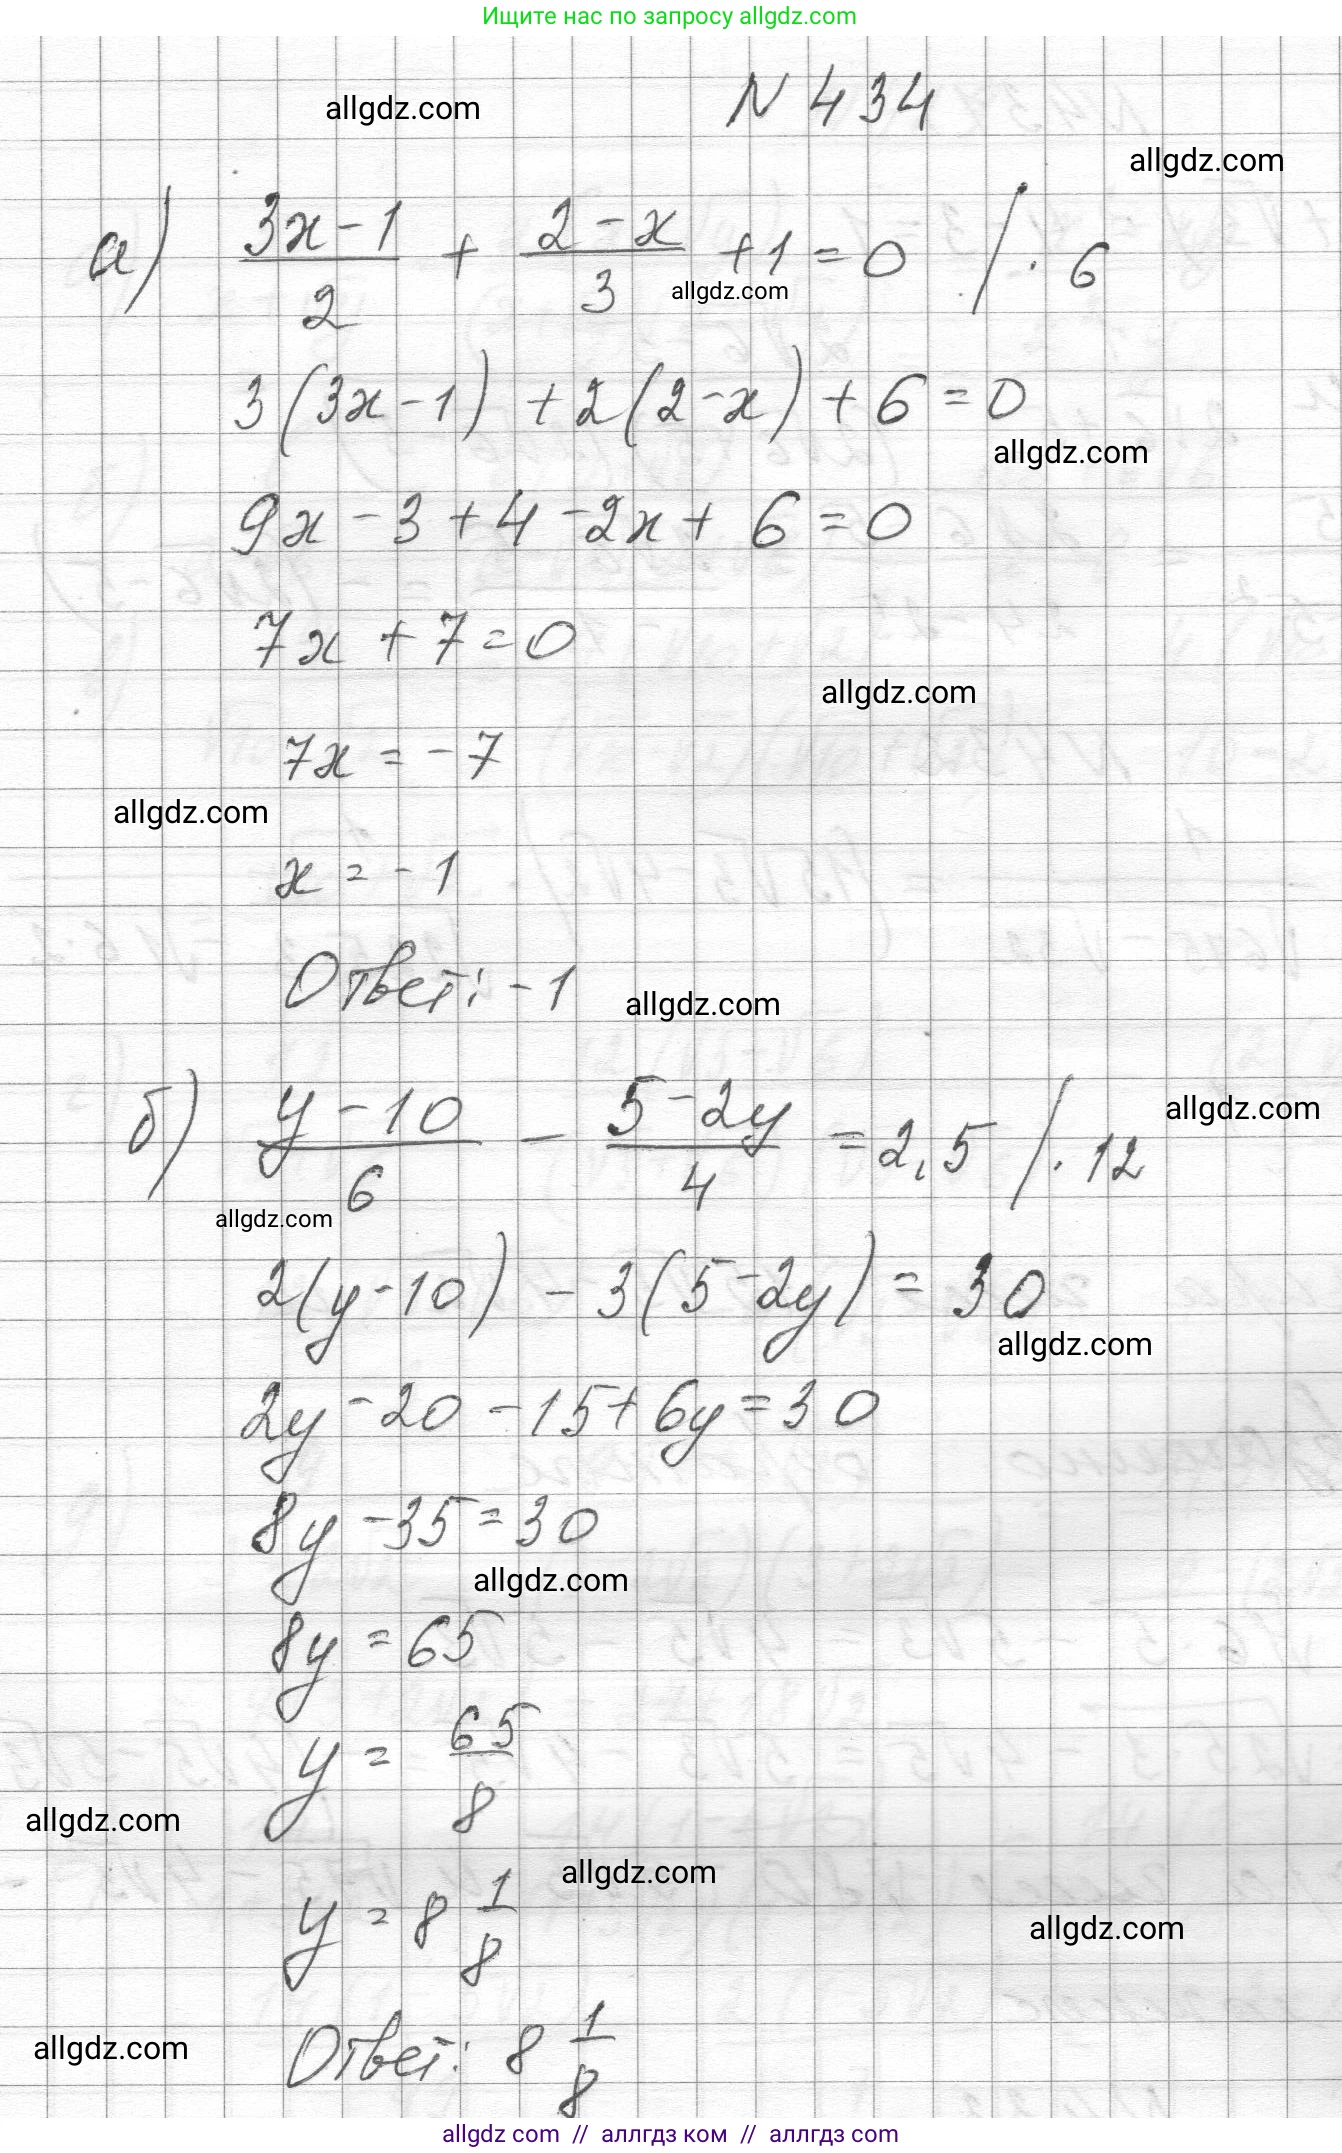 Ищите нас по запросу allgdz.com
N 434
allgdz.com
allgdz.com
а) (3x-1)/2 + (2-x)/3 + 1 = 0 / · 6
allgdz.com
3(3x-1) + 2(2-x) + 6 = 0
allgdz.com
9x - 3 + 4 - 2x + 6 = 0
7x + 7 = 0
allgdz.com
7x = -7
allgdz.com
x = -1
Ответ: -1
allgdz.com
б) (y-10)/6 - (5-2y)/4 = 2,5 / · 12
allgdz.com
allgdz.com
2(y-10) - 3(5-2y) = 30
allgdz.com
2y - 20 - 15 + 6y = 30
8y - 35 = 30
allgdz.com
8y = 65
y = 65/8
allgdz.com
allgdz.com
y = 8 1/8
allgdz.com
Ответ: 8 1/8
allgdz.com
allgdz com // аллгдз ком // аллгдз com